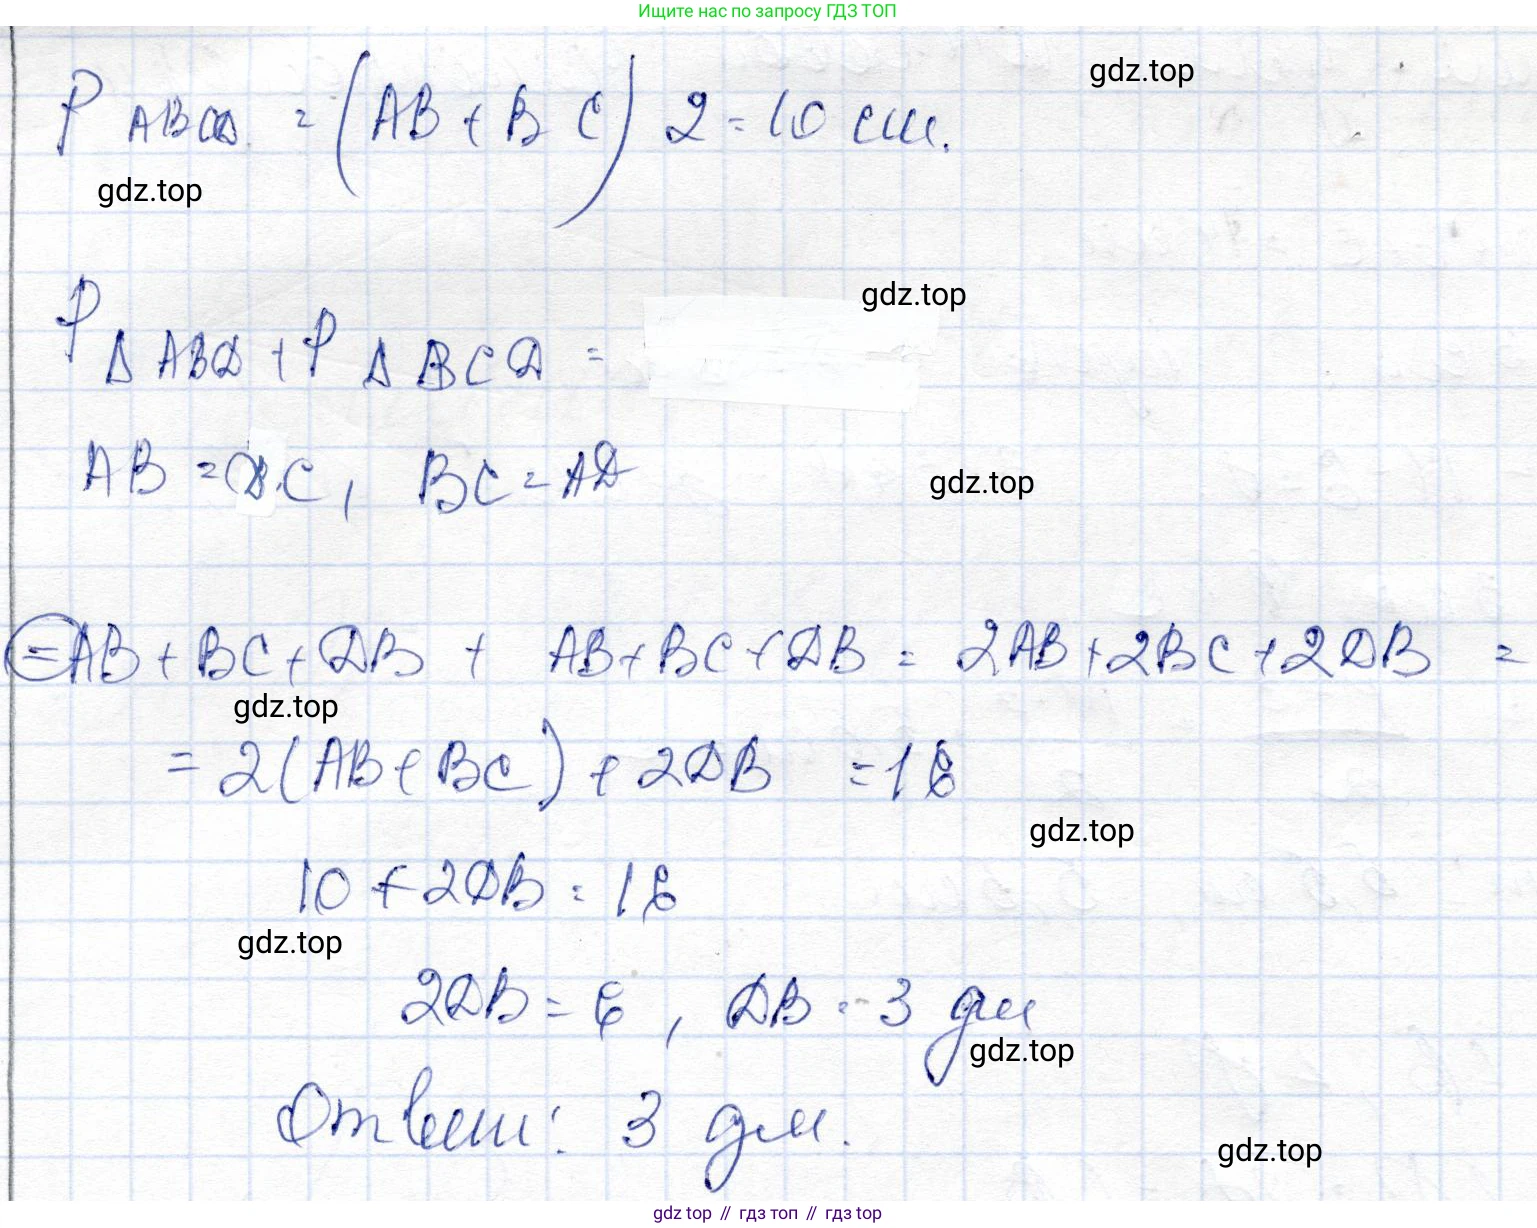 Ищите нас по запросу ГДЗ ТОП
gdz.top
P ABCD = (AB + BC) 2 = 10 см.
gdz.top
gdz.top
P Δ ABD + P Δ BCD =
AB = DC, BC = AD
gdz.top
= AB + BC + DB + AB + BC + DB = 2AB + 2BC + 2DB =
gdz.top
= 2(AB + BC) + 2DB = 16
gdz.top
10 + 2DB = 16
gdz.top
2DB = 6, DB = 3 дм
gdz.top
Ответ: 3 дм.
gdz.top
gdz top // гдз топ // гдз top